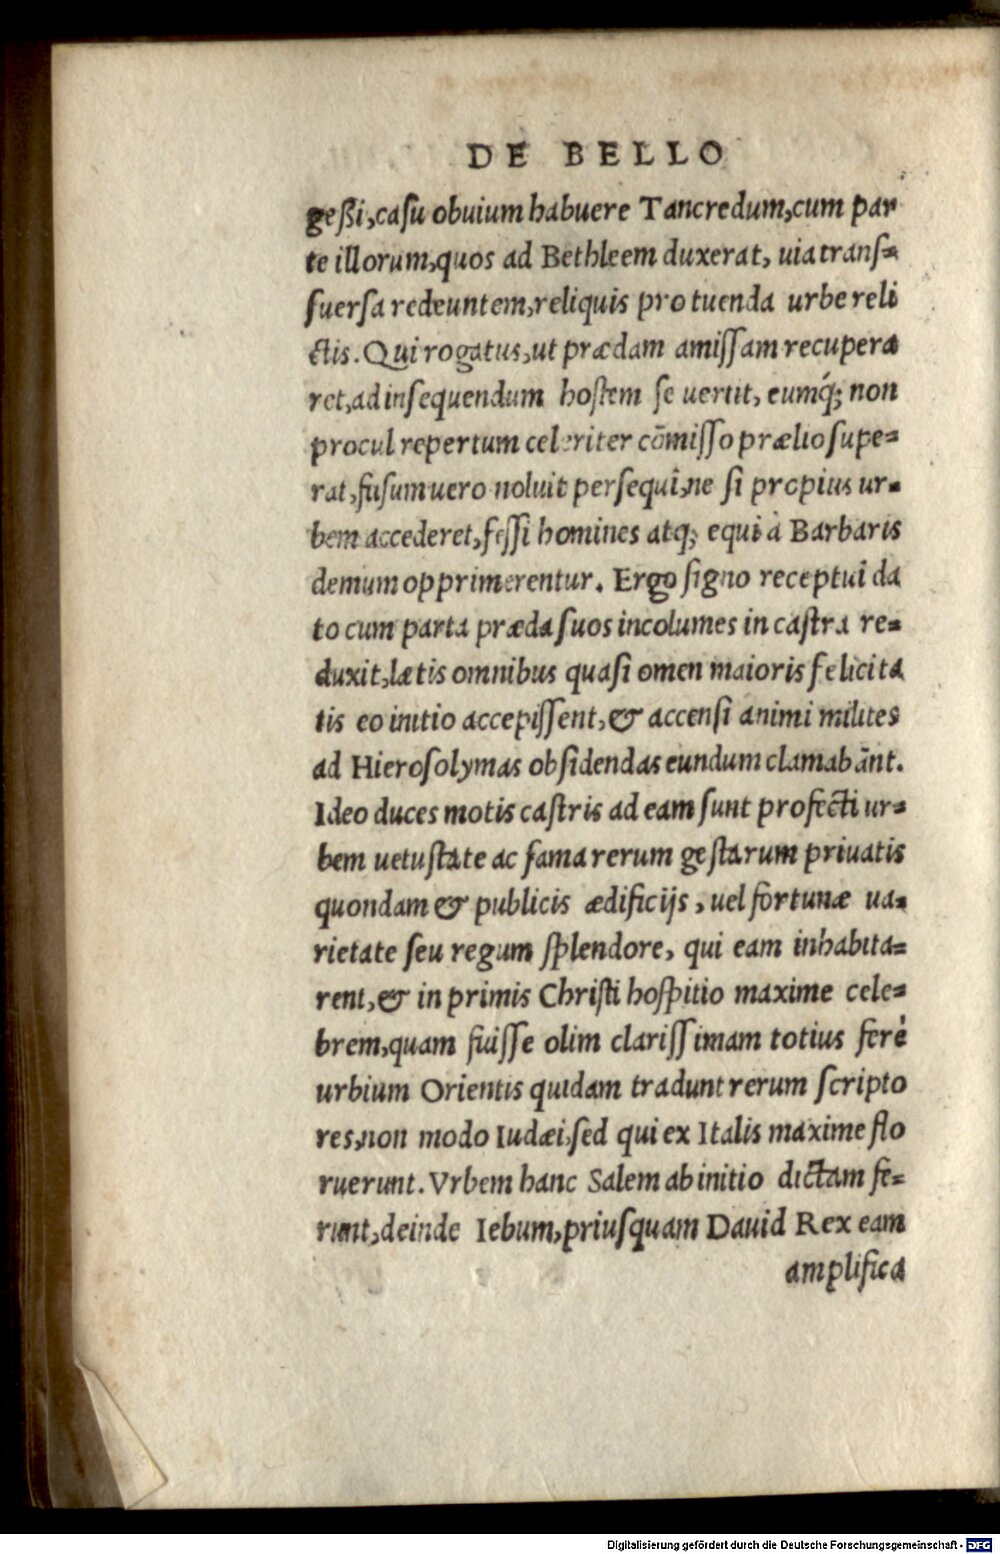 DE BELLO
geßi, caſu obuium habuere Tancredum, cum par
te illorum, quos ad Bethleem duxerat, uia tranſ-
fuerſa redeuntem, reliquis pro tuenda urbe reli
ctis. Qui rogatus, ut prædam amiſſam recupera
ret, ad inſequendum hoſtem ſe uertit, eumq́; non
procul repertum celeriter cōmiſſo prælio ſupe-
rat, fuſum uero noluit perſequi, ne ſi propius ur-
bem accederet, feſſi homines atq; equi à Barbaris
demum opprimerentur. Ergo ſigno receptui da
to cum parta præda ſuos incolumes in caſtra re-
duxit, lætis omnibus quaſi omen maioris felicita
tis eo initio accepiſſent, & accenſi animi milites
ad Hieroſolymas obſidendas eundum clamabānt.
Ideo duces motis caſtris ad eam ſunt profecti ur-
bem uetuſtate ac fama rerum geſtarum priuatis
quondam & publicis ædificijs, uel fortunæ ua-
rietate ſeu regum ſplendore, qui eam inhabita-
rent, & in primis Chriſti hoſpitio maxime cele-
brem, quam fuiſſe olim clariſſimam totius ferè
urbium Orientis quidam tradunt rerum ſcripto
res, non modo Iudæi, ſed qui ex Italis maxime flo
ruerunt. Vrbem hanc Salem ab initio dictam fe-
runt, deinde Iebum, priuſquam Dauid Rex eam
amplifica
Digitalisierung gefördert durch die Deutsche Forschungsgemeinschaft - DFG